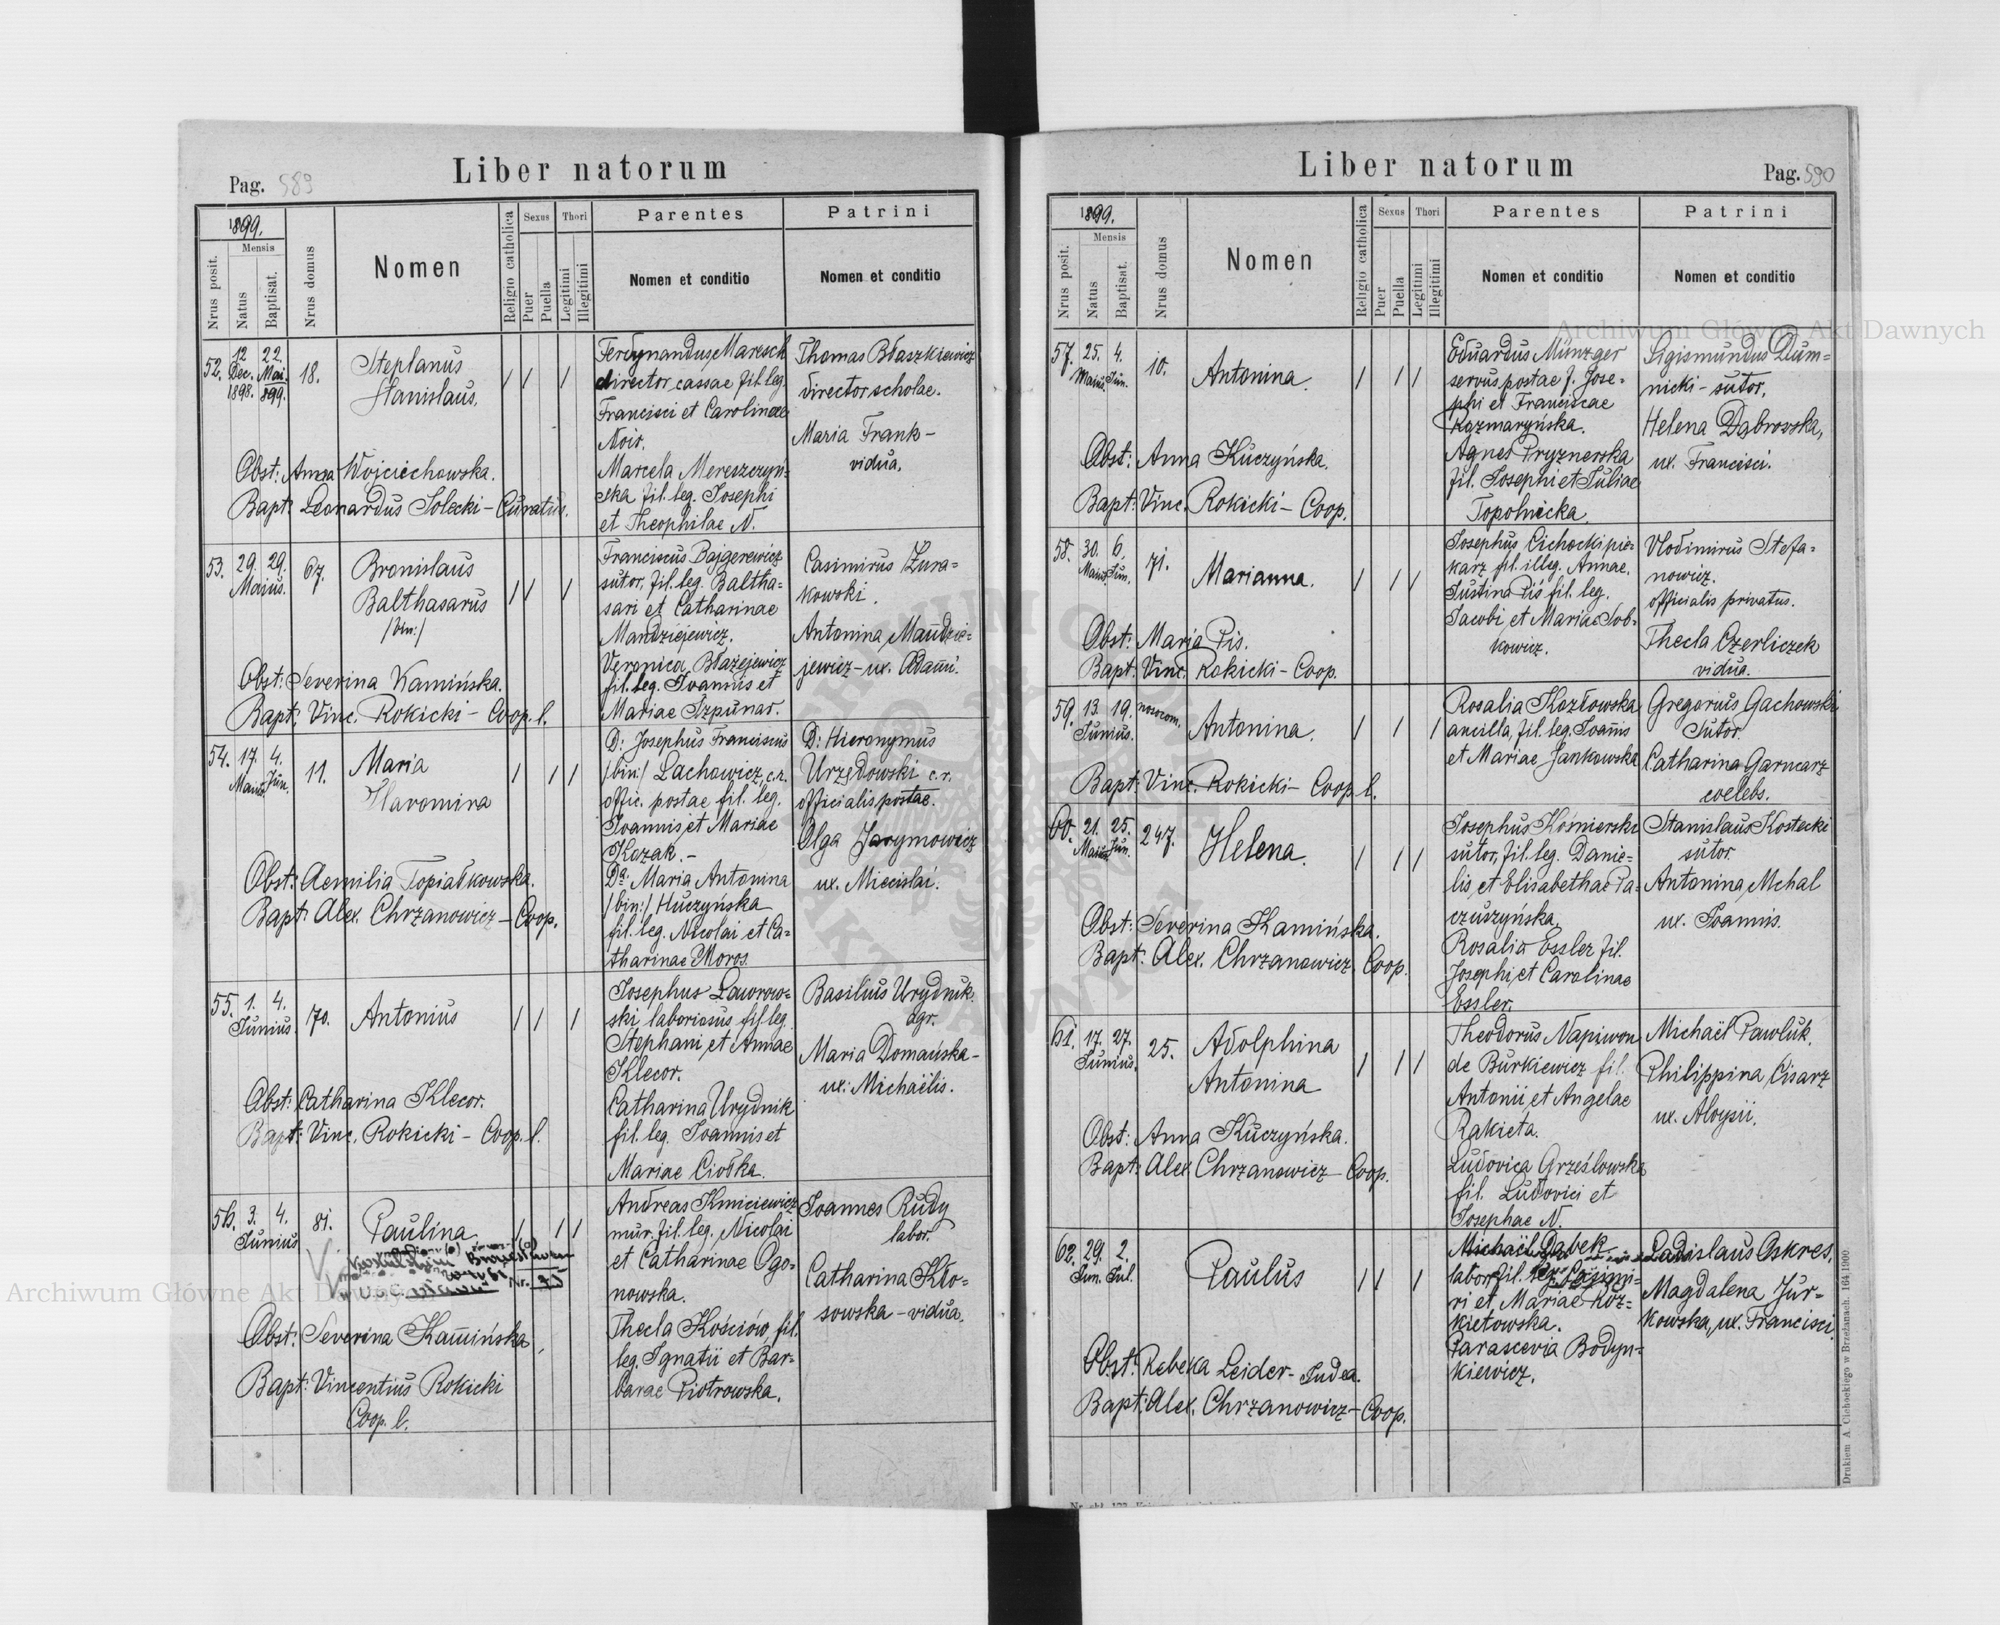 Liber natorum
Pag. 589
1899.
Nrus posit.
Mensis
Natus
Baptisat.
Nrus domus
Nomen
Religio catholica
Sexus
Puer
Puella
Thori
Legitimi
Illegitimi
Parentes
Nomen et conditio
Patrini
Nomen et conditio
52. 12 Dec. 1898. 22. Mai. 899. 18.
Stephanus
Stanislaus.
Ferdynandus Maresch
director cassae fil. leg.
Francisci et Carolinae
Noir.
Marcela Mereszczyń-
ska fil. leg. Josephi
et Theophilae N.
Thomas Błaszkiewicz
director scholae.
Maria Frank-
vidua.
Obst: Anna Wojciechowska.
Bapt: Leonardus Solecki - Curatus.
53. 29. 29. Maius. 67.
Bronislaus
Balthasarus
/bin:/
Franciscus Bajgerewicz
sutor, fil. leg. Baltha-
sari et Catharinae
Mandziejewicz.
Veronica Błażejewicz
fil. leg. Joannis et
Mariae Szpunar.
Casimirus Żura-
kowski.
Antonina Maudzie-
jewicz - ux. Adami.
Obst: Severina Kamińska.
Bapt: Vinc. Rokicki - Coop. l.
54. 17. Maius 4. Jun. 11.
Maria
Slavomira
D: Josephus Franciscus
/bin:/ Lachowicz, c.r.
offic. postae fil. leg.
Joannis et Mariae
Kozak. -
Da: Maria Antonina
/bin:/ Huczyńska
fil. leg. Nicolai et Ca-
tharinae Moros.
D: Hieronymus
Urzędowski c.r.
officialis postae.
Olga Jarymowicz
ux. Miecislai.
Obst: Aemilia Topiałkowska.
Bapt: Alex. Chrzanowicz - Coop.
55. 1. 4. Junius. 170.
Antonius
Josephus Lawrow-
ski laboriosus fil. leg.
Stephani et Annae
Klecor.
Catharina Urydnik
fil. leg. Joannis et
Mariae Ciołka.
Basilius Urydnik.
agr.
Maria Domańska -
ux: Michaëlis.
Obst: Catharina Klecor.
Bapt: Vinc. Rokicki - Coop. l.
56. 3. 4. Junius 81.
Paulina.
Andreas Kmiciewicz
mur. fil. leg. Nicolai
et Catharinae Ogo-
nowska.
Thecla Kościów, fil.
leg. Ignatii et Bar-
barae Piotrowska.
Joannes Rudy
labor.
Catharina Kło-
sowska - vidua.
Obst: Severina Kamińska,
Bapt: Vincentius Rokicki
Coop. l.
Liber natorum
Pag. 590
1899.
Nrus posit.
Mensis
Natus
Baptisat.
Nrus domus
Nomen
Religio catholica
Sexus
Puer
Puella
Thori
Legitimi
Illegitimi
Parentes
Nomen et conditio
Patrini
Nomen et conditio
57. 25. Maius. 4. Jun. 10.
Antonina.
Eduardus Münzger
servus postae f. Jose-
phi et Franciscae
Rozmaryńska.
Agnes Pryznerska
fil. Josephi et Juliae
Topolnicka.
Sigismundus Dum-
nicki - sutor.
Helena Dąbrovska,
ux. Francisci.
Obst: Anna Kuczyńska.
Bapt: Vinc. Rokicki - Coop.
58. 30. Maius 6. Jun. 71.
Marianna.
Josephus Cichocki pie-
karz fil. illeg. Annae.
Justina Piś fil. leg.
Jacobi et Mariae Sob-
kowicz.
Vlodimirus Stefa-
nowicz.
officialis privatus.
Thecla Czerliczek
vidua.
Obst: Maria Pis.
Bapt: Vinc. Rokicki - Coop.
59. 13. 19. Junius. nosocom.
Antonina.
Rosalia Kozłowska
ancilla, fil. leg. Joañis
et Mariae Jankowska
Gregorius Gachowski
Sutor.
Catharina Garncarz
coelebs.
Bapt: Vinc. Rokicki - Coop l.
60. 21. Maius 25. Jun. 247.
Helena.
Josephus Kośmierski
sutor, fil. leg. Danie-
lis, et Elisabethae Pa-
czuszyńska.
Rosalia Essler fil.
Josephi et Carolinae
Essler.
Stanislaus Kostecki
sutor.
Antonina Mchal
ux. Joannis.
Obst: Severina Kamińska.
Bapt: Alex. Chrzanowicz. Coop.
61. 17. 27. Junius. 25.
Adolphina
Antonina
Theodorus Napiwon
de Burkiewicz fil.
Antonii et Angelae
Rakieta.
Ludovica Grześlowska
fil. Ludovici et
Josephae N.
Michaël Pawluk.
Philippina Cisarz
ux. Aloysii.
Obst: Anna Kuczyńska.
Bapt: Alex Chrzanowicz - Coop.
62. 29. Jun. 2. Jul.
Paulus
Michaël Dąbek
labor. fil. leg. Casimi-
ri et Mariae Koz-
kietowska.
Parascevia Bodyn-
kiewicz.
Ladislaus Oskres.
Magdalena Jur-
kowska, ux. Francisci.
Obst: Rebeka Leider - Judea.
Bapt: Alex. Chrzanowicz - Coop.
Drukiem A. Cichockiego w Brzeżanach. 164|1900.
Archiwum Główne Akt Dawnych
Archiwum Główne Akt Dawnych